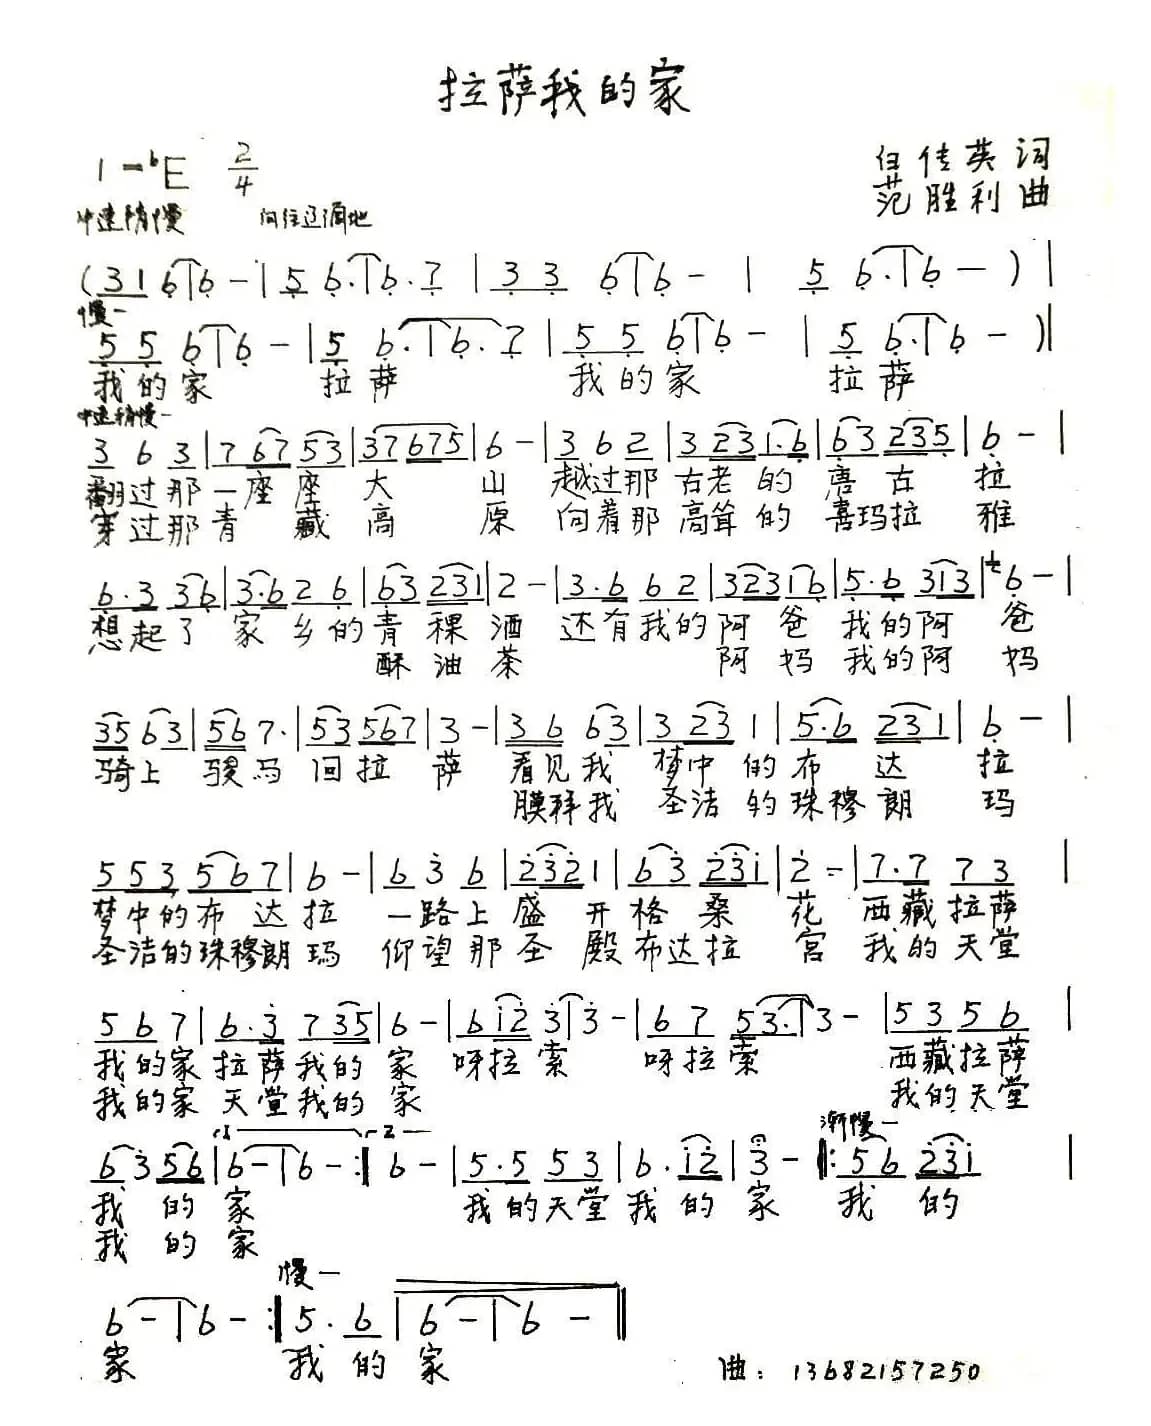 拉萨我的家
1=bE 2/4
白佳英 词
范胜利 曲
中速稍慢 向往辽阔地
(3 1 6 | 6 - | 5 6. | 6. 7 | 3 3 6 | 6 - | 5 6. | 6 - ) |
慢一
5 5 6 | 6 - | 5 6. | 6. 7 | 5 5 6 | 6 - | 5 6. | 6 - ) |
我的家 拉萨 我的家 拉萨
中速稍慢一
3 6 3 | 7 6 7 5 3 | 3 7 6 7 5 | 6 - | 3 6 2 | 3 2 3 1. 6 | 6 3 2 3 5 | 6 - |
翻过那一座座大山 越过那古老的唐古拉
穿过那青藏高原 向着那高耸的喜玛拉雅
6. 3 3 6 | 3. 6 2 6 | 6 3 2 3 1 | 2 - | 3. 6 6 2 | 3 2 3 1 6 | 5. 6 3 1 3 | 6 - |
想起了家乡的青稞酒 还有我的阿爸我的阿爸
酥油茶 阿妈我的阿妈
3 5 6 3 | 5 6 7. | 5 3 5 6 7 | 3 - | 3 6 6 3 | 3 2 3 1 | 5. 6 2 3 1 | 6 - |
骑上骏马回拉萨 看见我梦中的布达拉
膜拜我圣洁的珠穆朗玛
5 5 3 5 6 7 | 6 - | 6 3 6 | 2 3 2 1 | 6 3 2 3 1 | 2 - | 7. 7 7 3 |
梦中的布达拉 一路上盛开格桑花 西藏拉萨
圣洁的珠穆朗玛 仰望那圣殿布达拉宫 我的天堂
5 6 7 | 6. 3 7 3 5 | 6 - | 6 1 2 3 | 3 - | 6 7 5 3. | 3 - | 5 3 5 6 |
我的家拉萨我的家 呀拉索 呀拉索 西藏拉萨
我的家天堂我的家 我的天堂
1 2 渐慢一
6 3 5 6 | 6 - | 6 - :| 6 - | 5. 5 5 3 | 6. 1 2 | 3 - |: 5 6 2 3 1 |
我的家 我的天堂我的家 我的
我的家
慢一
6 - | 6 - :| 5. 6 | 6 - | 6 - ||
家 我的家
曲：13682157250